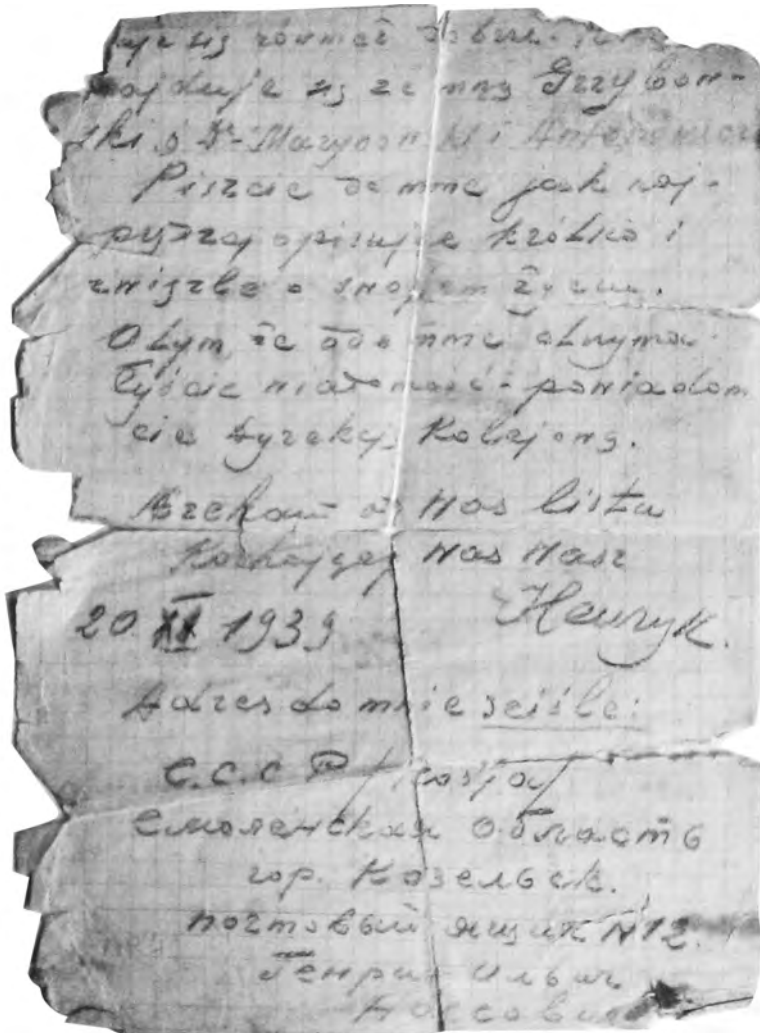 się również dobrze.
znajduje się ze mną Grzybow-
ski, Dr. Maryanski i Antonowicz
Piszcie do mnie jak naj-
prędzej opisując krótko i
zwięźle o swojem życiu.
O tym, że ode mnie otrzyma-
łyście wiadomość - powiadom
cie dyrekcję Kolejową.
Czekam od Was listu
Kochający Was Wasz
20 XI 1939 Henryk.
Adres do mnie ściśle:
С.С.С.Р. /Rosja/
Смоленская область
гор. Козельск.
почтовый ящик N12.
Генрих Ильич